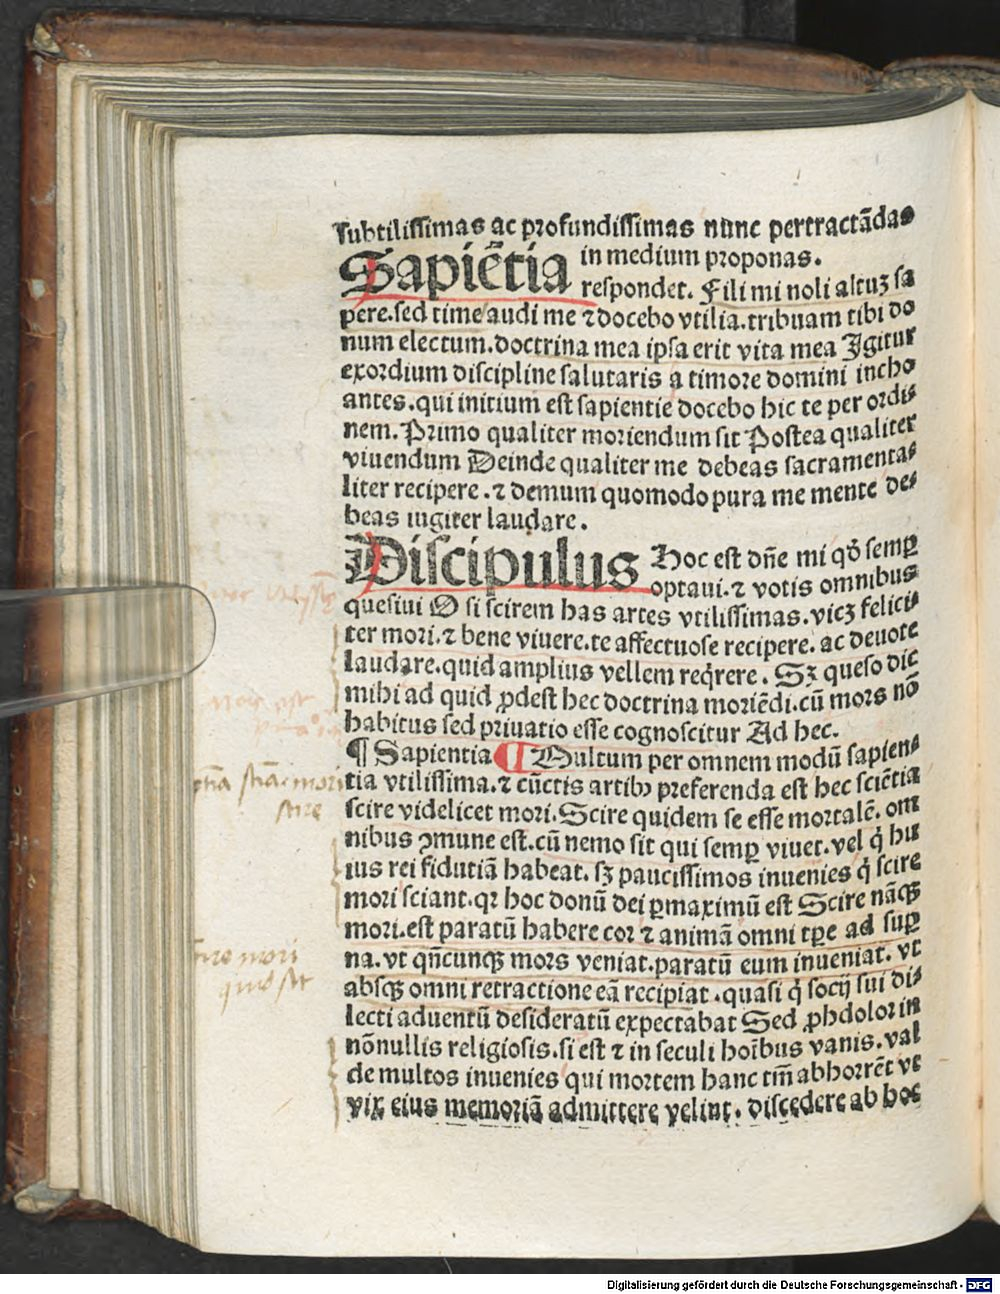 subtilissimas ac profundissimas nunc pertractãdas
in medium proponas.
Sapiẽtia respondet. Fili mi noli altuꝫ sa
pere.sed time audi me ⁊ docebo vtilia.tribuam tibi do
num electum.doctrina mea ipsa erit vita mea Igitur
exordium discipline salutaris a timore domini incho
antes.qui initium est sapientie docebo hic te per ordi⸗
nem. Primo qualiter moriendum sit Postea qualiter
viuendum Deinde qualiter me debeas sacramenta⸗
liter recipere .⁊ demum quomodo pura me mente de⸗
beas iugiter laudare.
Discipulus Hoc est dñe mi qđ semꝑ
optaui.⁊ votis omnibus
quesiui O si scirem has artes vtilissimas.vicꝫ felici⸗
ter mori.⁊ bene viuere.te affectuose recipere. ac deuote
laudare.quid amplius vellem reqͥrere . Sꝫ queso dic
mihi ad quid ꝓdest hec doctrina moriẽdi.cũ mors nõ
habitus sed priuatio esse cognoscitur Ad hec.
¶ Sapientia ¶ Multum per omnem modũ sapien⸗
tia vtilissima.⁊ cũctis artibꝰ preferenda est hec sciẽtia
scire videlicet mori.Scire quidem se esse mortalẽ. om
nibus ꝯmune est.cũ nemo sit qui semꝑ viuet.vel q̇ hu
ius rei fidutiã habeat. sꝫ paucissimos inuenies q̇ scire
mori sciant.qꝛ hoc donũ dei ꝑmaximũ est Scire nãqꝫ
mori.est paratũ habere cor ⁊ animã omni tꝑe ad suꝑ
na.vt qñcunqꝫ mors veniat.paratũ eum inueniat. vt
absqꝫ omni retractione eã recipiat .quasi q̇ socij sui di⸗
lecti aduentũ desideratũ expectabat Sed ꝓhdolor in
nõnullis religiosis.si est ⁊ in seculi hoĩbus vanis.val
de multos inuenies qui mortem hanc tm̃ abhorrẽt vt
vix eius memoriã admittere velint. discedere ab hoc
mori
scire
mori
quid sit
Digitalisierung gefördert durch die Deutsche Forschungsgemeinschaft - DFG